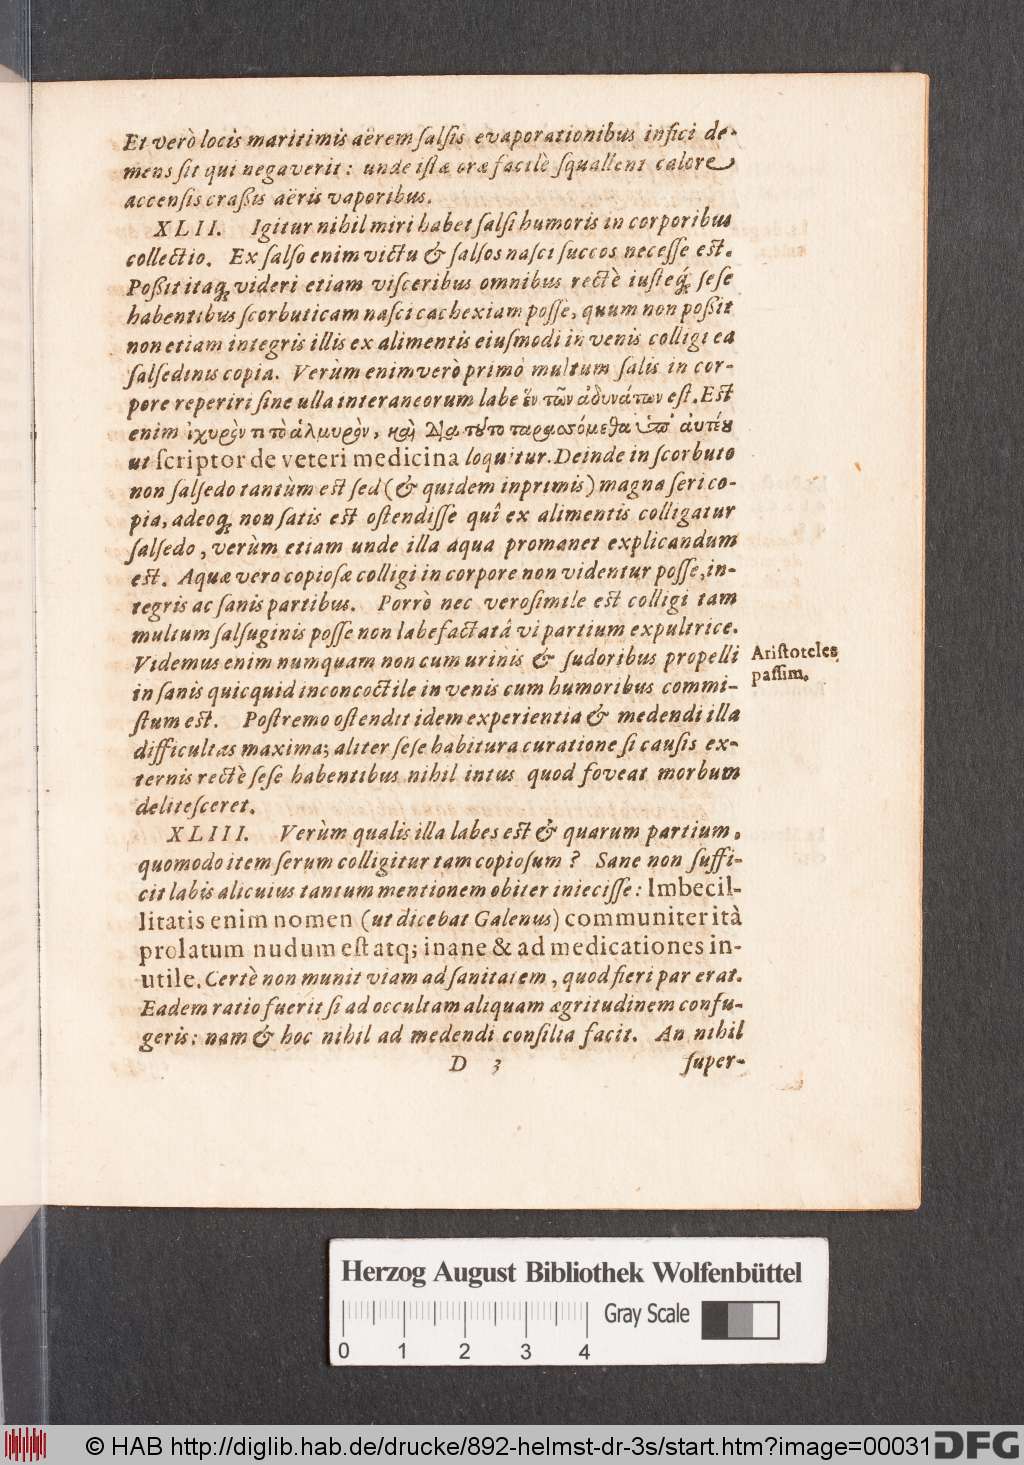 Et verò locis maritimis aërem ſalſis evaporationibus infici de-
mens ſit qui negaverit: unde iſtæ oræ facilè ſquallent calore
accenſis craßis aëris vaporibus.
XLII. Igitur nihil miri habet ſalſi humoris in corporibus
collectio. Ex ſalſo enim victu & ſalſos naſci ſuccos neceſſe eſt.
Poßit itaq; videri etiam viſceribus omnibus rectè iuſteq; ſeſe
habentibus ſcorbuticam naſci cachexiam poſſe, quum non poßit
non etiam integris illis ex alimentis eiuſmodi in venis colligi ea
ſalſedinis copia. Verùm enimverò primò multum ſalis in cor-
pore reperiri ſine ulla interaneorum labe ἓν τῶν ἀδυνάτων eſt. Eſt
enim ἰχυρὸν τι τὸ ἁλμυρὸν, καὶ διὰ τοῦτο ταρασσόμεθα ὑπ' αὐτέου
ut ſcriptor de veteri medicina loquitur. Deinde in ſcorbuto
non ſalſedo tantùm eſt ſed (& quidem inprimis) magna ſeri co-
pia, adeoq; non ſatis eſt oſtendiſſe quî ex alimentis colligatur
ſalſedo, verùm etiam unde illa aqua promanet explicandum
eſt. Aquæ vero copioſæ colligi in corpore non videntur poſſe, in-
tegris ac ſanis partibus. Porrò nec veroſimile eſt colligi tam
multum ſalſuginis poſſe non labefactatâ vi partium expultrice.
Videmus enim numquam non cum urinis & ſudoribus propelli
in ſanis quicquid inconcoctile in venis cum humoribus commi-
ſtum eſt. Poſtremo oſtendit idem experientia & medendi illa
difficultas maxima; aliter ſeſe habitura curatione ſi cauſis ex-
ternis rectè ſeſe habentibus nihil intus quod foveat morbum
deliteſceret.
Ariſtoteles
paſſim.
XLIII. Verùm qualis illa labes eſt & quarum partium,
quomodo item ſerum colligitur tam copioſum? Sane non ſuffi-
cit labis alicuius tantum mentionem obiter inieciſſe: Imbecil-
litatis enim nomen (ut dicebat Galenus) communiter ità
prolatum nudum eſt atq; inane & ad medicationes in-
utile. Certè non munit viam ad ſanitatem, quod fieri par erat.
Eadem ratio fuerit ſi ad occultam aliquam ægritudinem confu-
geris: nam & hoc nihil ad medendi conſilia facit. An nihil
D 3 ſuper-
Herzog August Bibliothek Wolfenbüttel
Gray Scale
0 1 2 3 4
© HAB http://diglib.hab.de/drucke/892-helmst-dr-3s/start.htm?image=00031
DFG